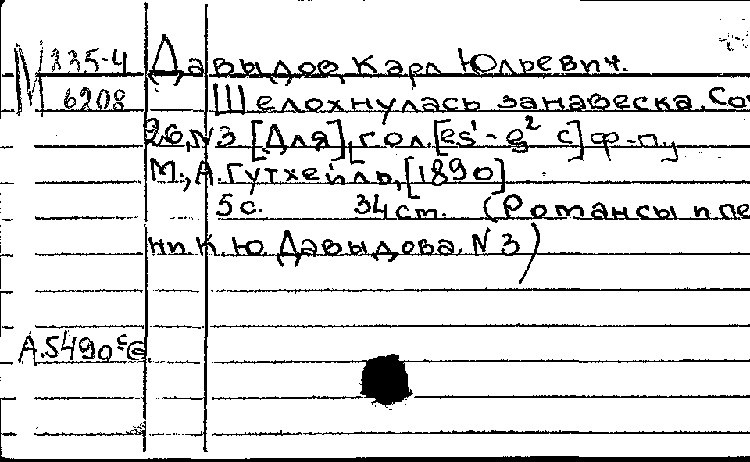 М 335-4 Давыдов Карл Юльевич.
6208 Шелохнулась занавеска. Соч
26, N3 [Для], гол. [es¹-g² с] ф-п.,
М., А. Гутхейль, [1890]
5с. 34 ст. (Романсы и пе
ни. К. Ю. Давыдова. N 3)
А.5490